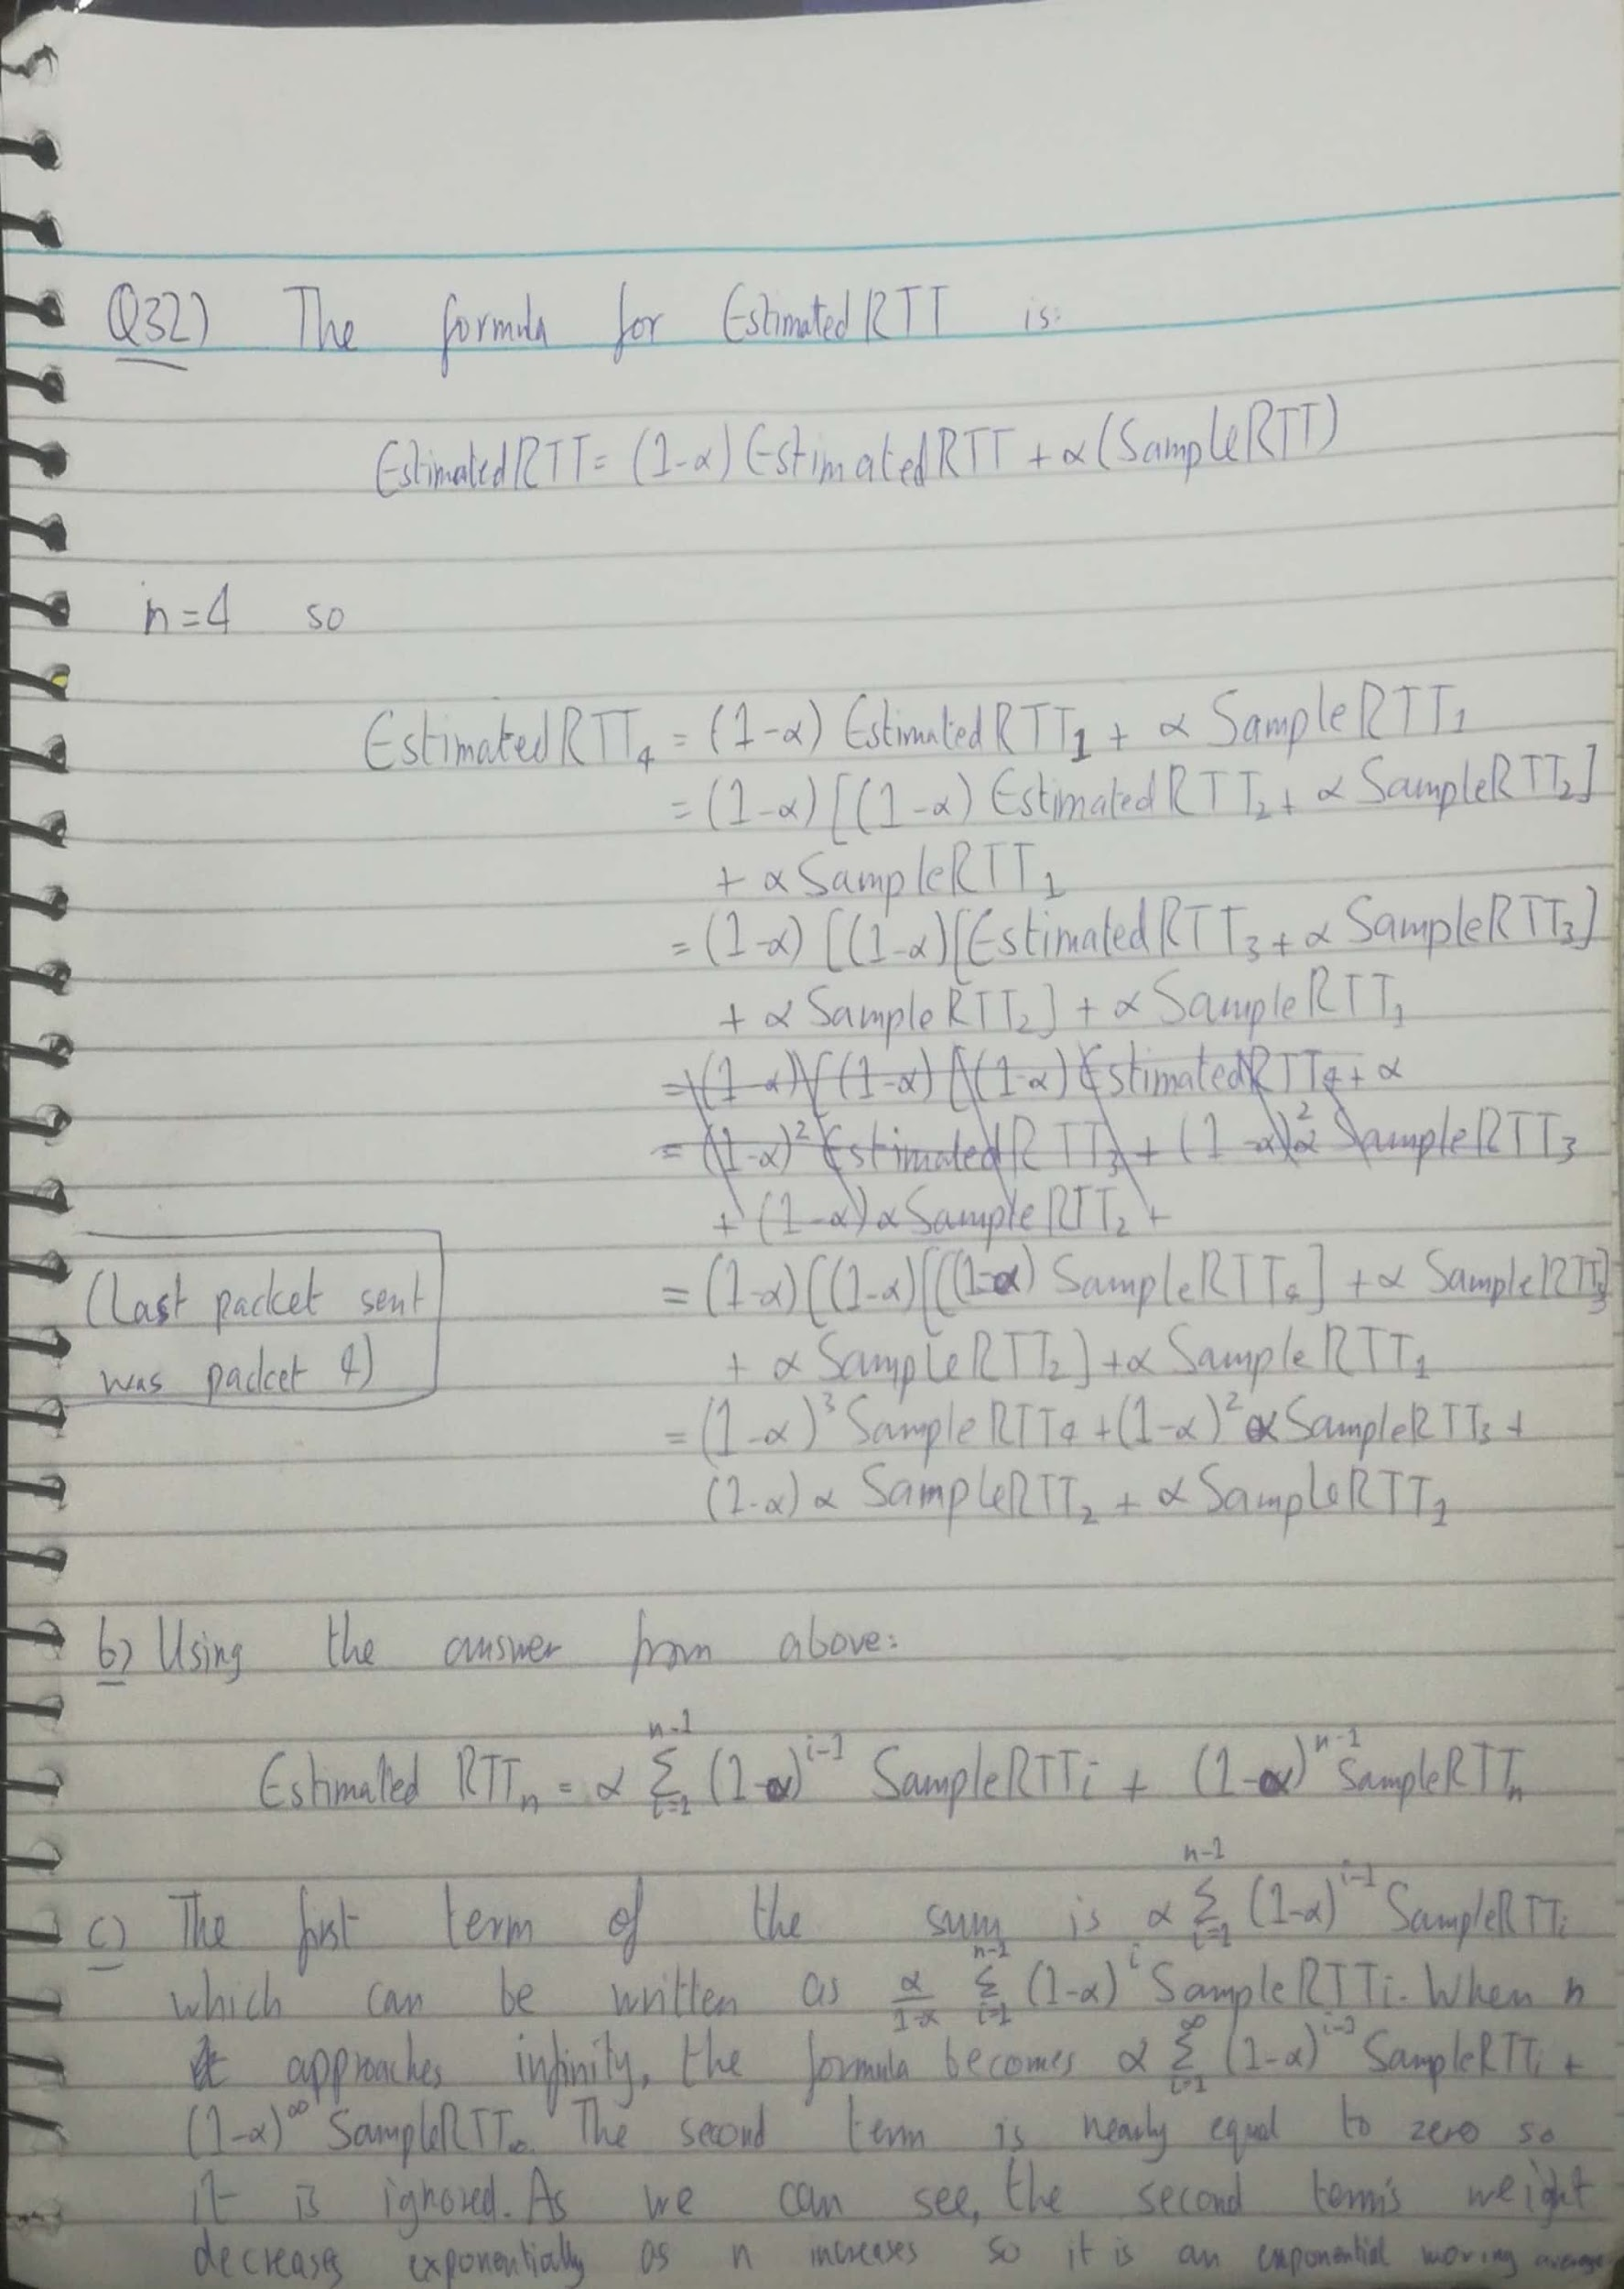 Q32) The formula for EstimatedRTT is:
EstimatedRTT = (1-α) EstimatedRTT + α(SampleRTT)
n=4 so
EstimatedRTT₄ = (1-α) EstimatedRTT₁ + α SampleRTT₁
= (1-α) [(1-α) EstimatedRTT₂ + α SampleRTT₂]
+ α SampleRTT₁
= (1-α) [(1-α)[EstimatedRTT₃ + α SampleRTT₃]
+ α SampleRTT₂] + α SampleRTT₁
= (1-α)[(1-α)[(1-α) EstimatedRTT₄ + α
= (1-α)² EstimatedRTT₃ + (1-α)²α SampleRTT₃
+ (1-α)α SampleRTT₂ +
(Last packet sent
was packet 4)
= (1-α)[(1-α)[((1-α) SampleRTT₄] + α SampleRTT₃]
+ α SampleRTT₂] + α SampleRTT₁
= (1-α)³ SampleRTT₄ + (1-α)² α SampleRTT₃ +
(1-α) α SampleRTT₂ + α SampleRTT₁
b) Using the answer from above:
Estimated RTTₙ = α Σᵢ₌₁ⁿ⁻¹ (1-α)ⁱ⁻¹ SampleRTTᵢ + (1-α)ⁿ⁻¹ SampleRTTₙ
c) The first term of the sum is α Σᵢ₌₁ⁿ⁻¹ (1-α)ⁱ⁻¹ SampleRTTᵢ
which can be written as α/(1-α) Σᵢ₌₁ⁿ⁻¹ (1-α)ⁱ SampleRTTᵢ. When n
approaches infinity, the formula becomes α Σᵢ₌₁^∞ (1-α)ⁱ⁻¹ SampleRTTᵢ +
(1-α)^∞ SampleRTT_∞. The second term is nearly equal to zero so
it is ignored. As we can see, the second term's weight
decreases exponentially as n increases so it is an exponential moving average